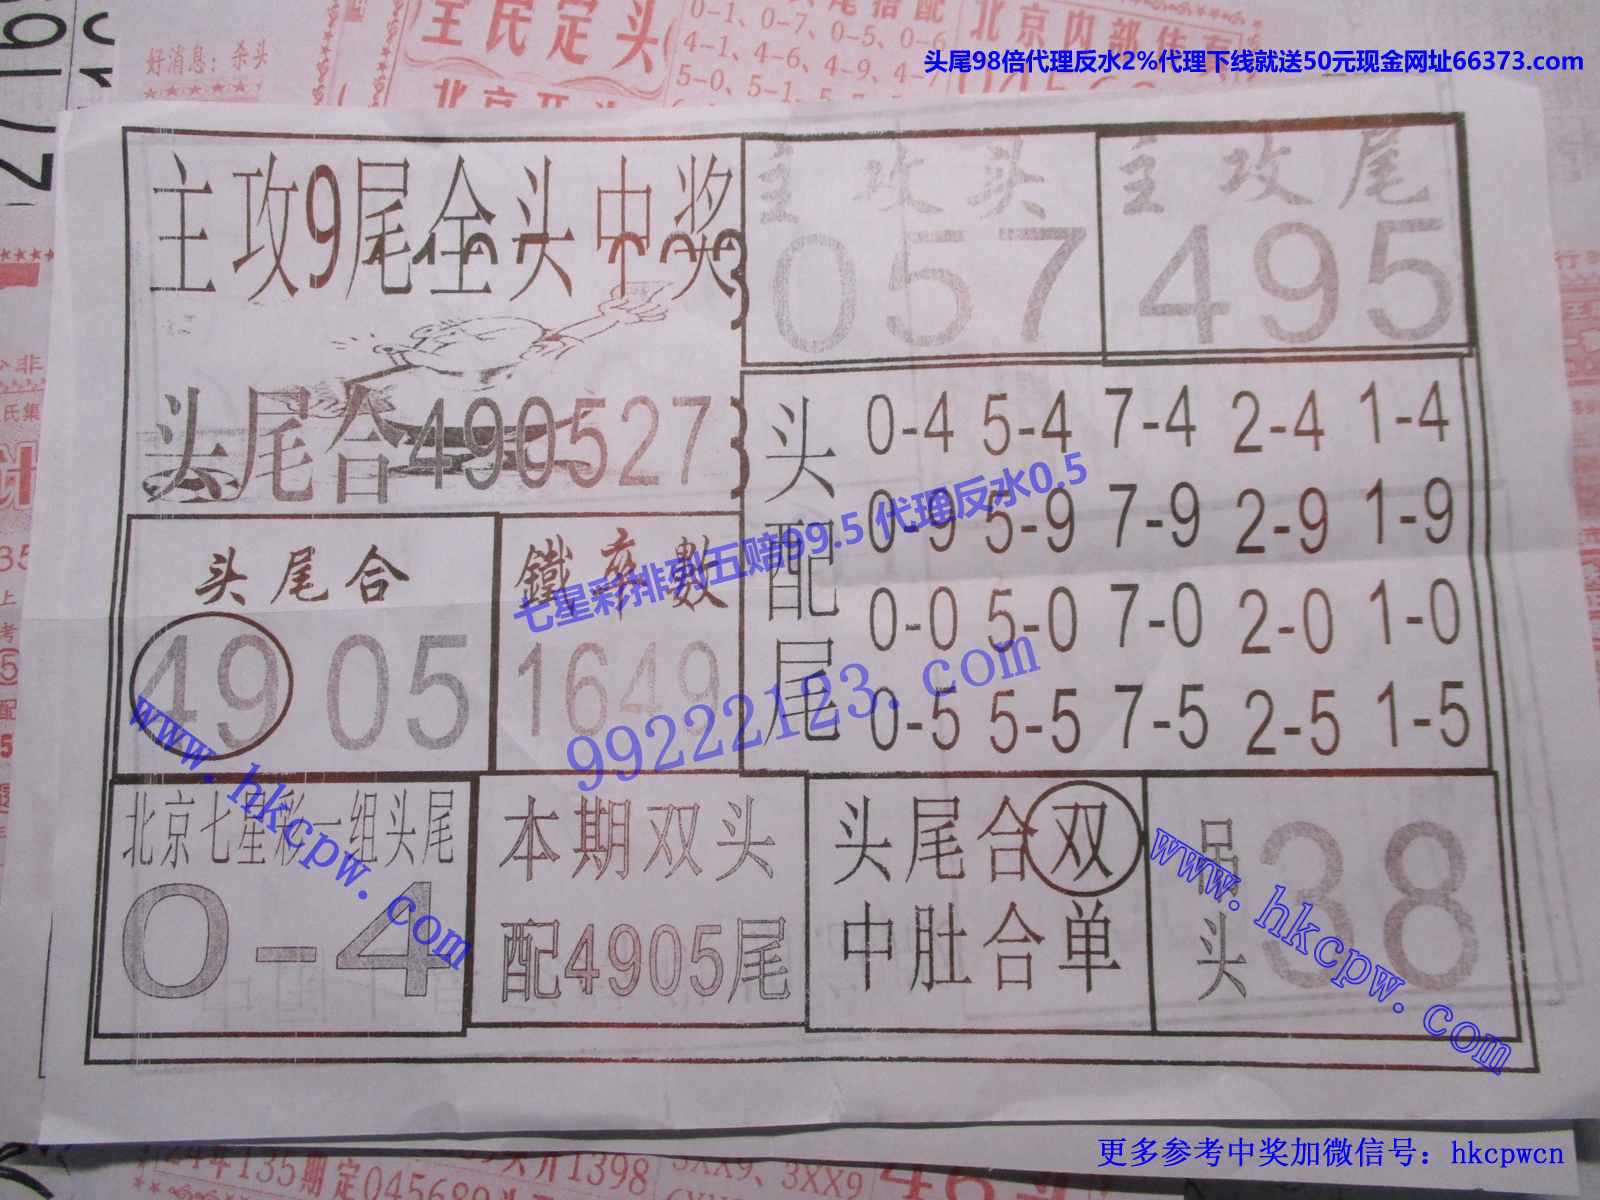 好消息：杀头
全民定头
0-1、0-7、0-5、0-6
4-1、4-6、4-9、4-
5-0、5-1、5-
北京内部
北京开头
头尾98倍代理反水2%代理下线就送50元现金网址66373.com
主攻9尾全头中奖
主攻头
057
主攻尾
495
头尾合490527
头配尾
0-4 5-4 7-4 2-4 1-4
0-9 5-9 7-9 2-9 1-9
0-0 5-0 7-0 2-0 1-0
0-5 5-5 7-5 2-5 1-5
头尾合
49 05
鐵卒數
1649
七星彩排列五赔99.5 代理反水0.5
99222123.com
www.hkcpw.com
北京七星彩一组头尾
0-4
本期双头
配4905尾
头尾合双
中肚合单
吊头
38
www.hkcpw.com
更多参考中奖加微信号：hkcpwcn
135期定045689头
1398
3XX9、3XX9